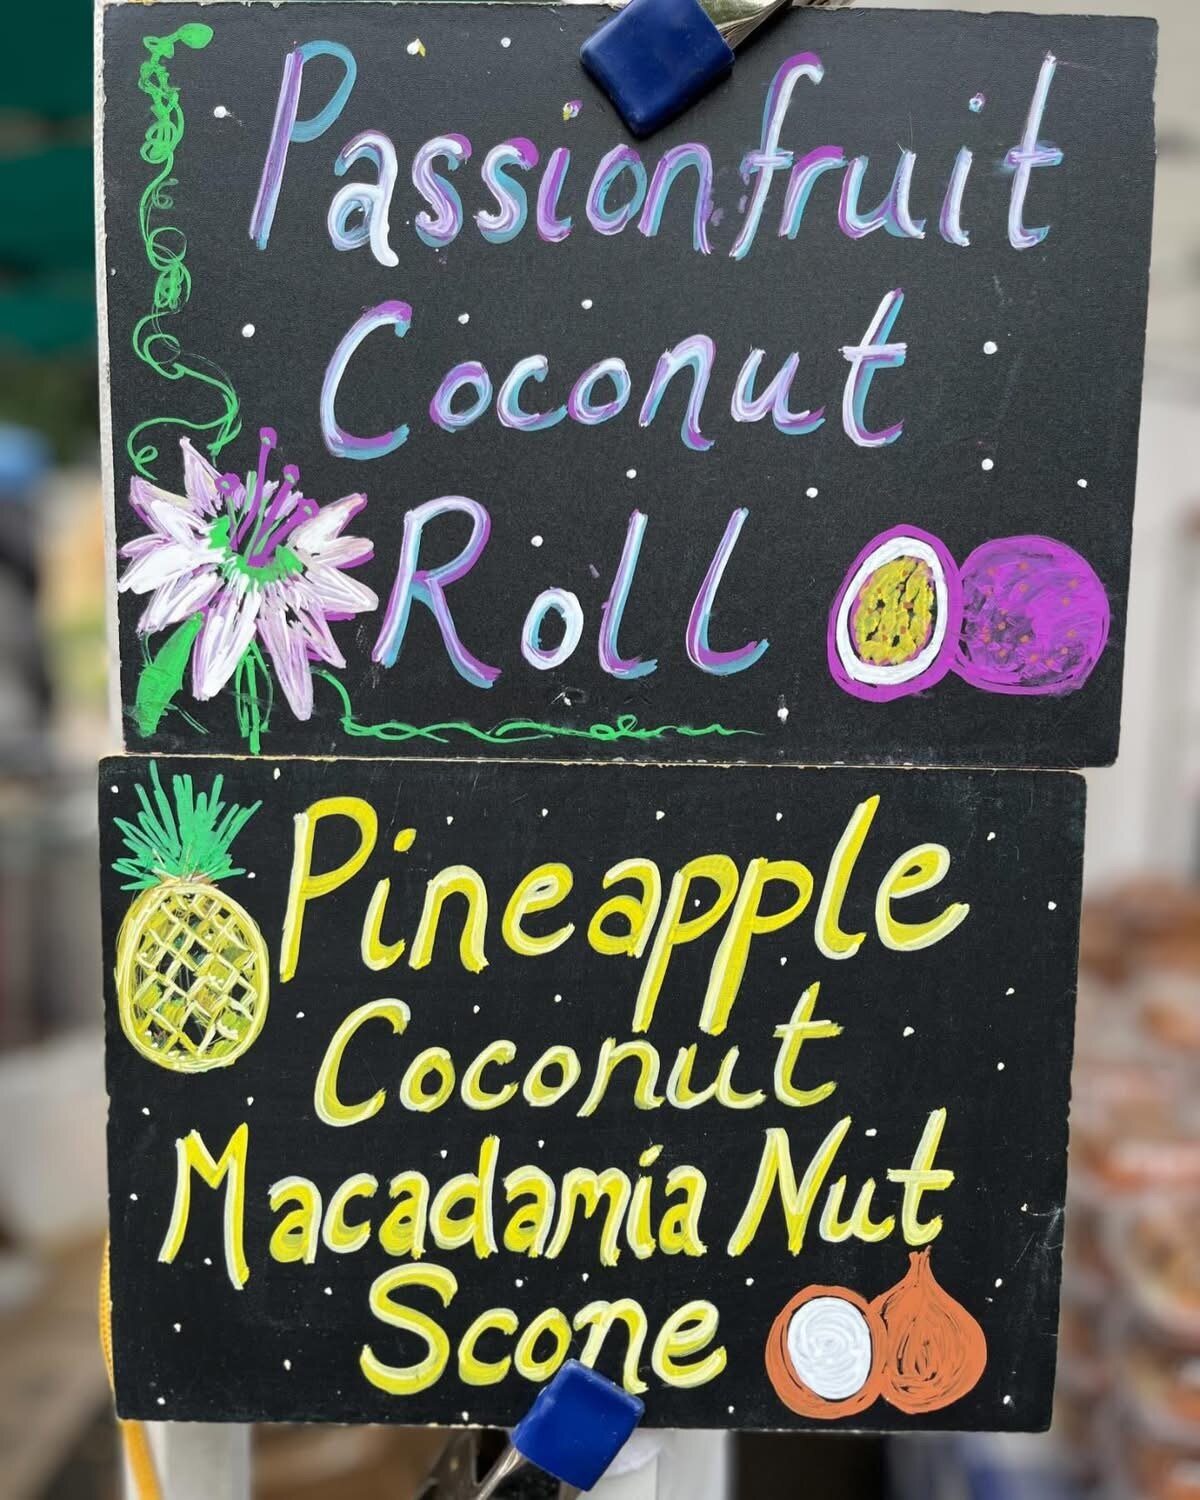 Passionfruit
Coconut
Roll
Pineapple
Coconut
Macadamia Nut
Scone